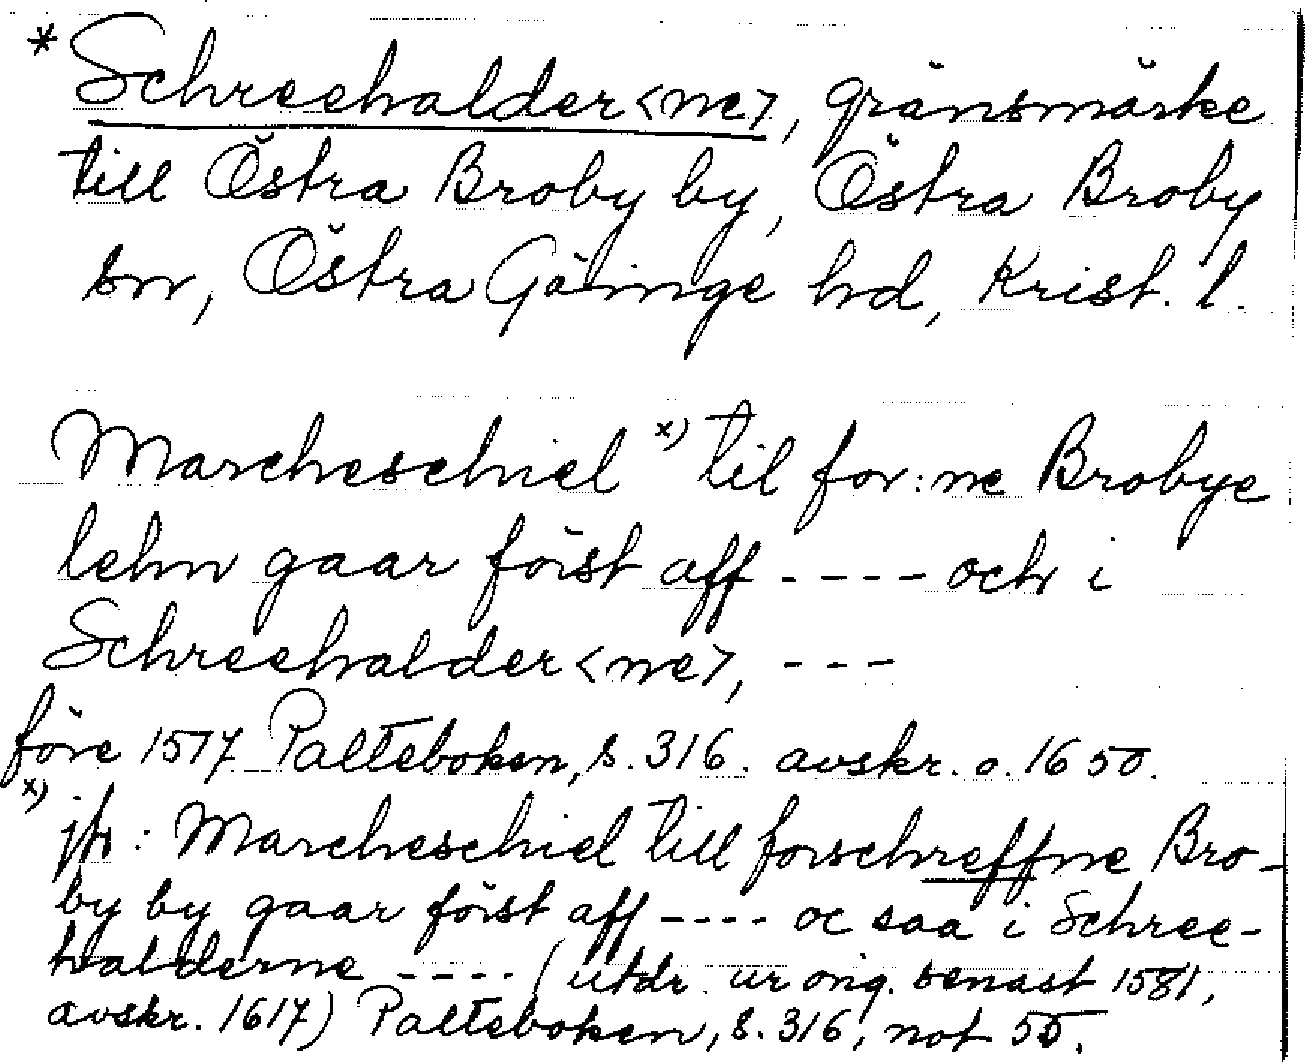 * Schreehalder<ne>, gränsmärke
till Östra Broby by, Östra Broby
sn, Östra Göinge hd, Krist. l.
Marcheschiel x) til for:ne Brobye
lehn gaar först aff ---- och i
Schreehalder<ne>, ---
före 1517 Palteboken, s. 316. avskr. o. 1650.
x) jfr: Marcheschiel till forschreffne Bro-
by by gaar först aff ---- oc saa i Schree-
halderne ---- (utdr. ur orig. senast 1581,
avskr. 1617) Palteboken, s. 316, not 55.